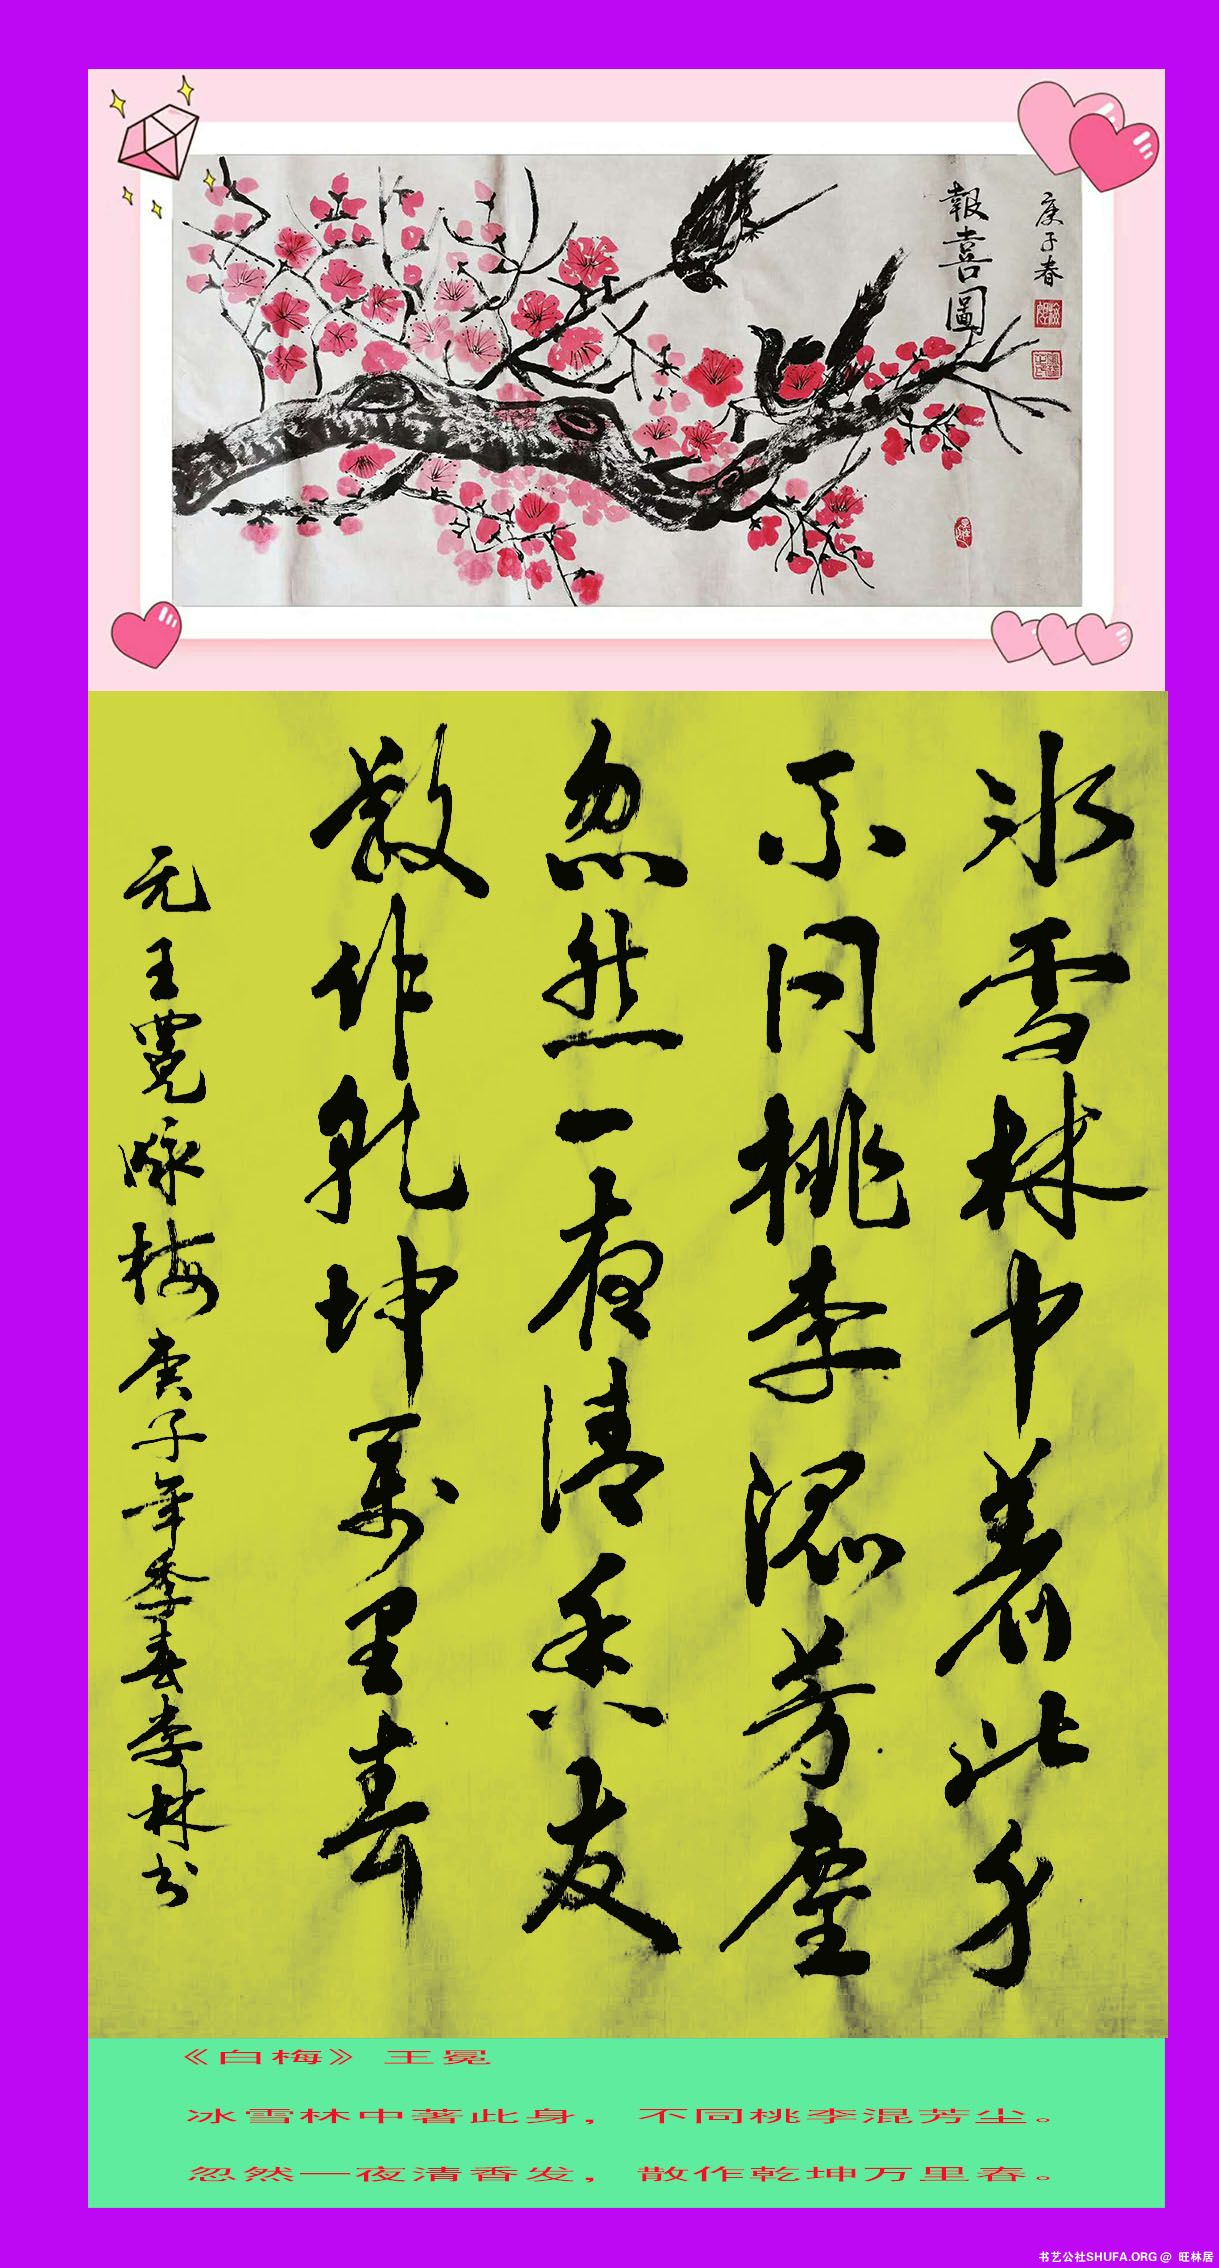 庚子春
報喜圖
冰雪林中著此身
不同桃李混芳塵
忽然一夜清香发
散作乾坤万里春
元王冕咏梅庚子年季春李林书
《白梅》 王冕
冰雪林中著此身，不同桃李混芳尘。
忽然一夜清香发，散作乾坤万里春。
书艺公社SHUFA.ORG @ 旺林居